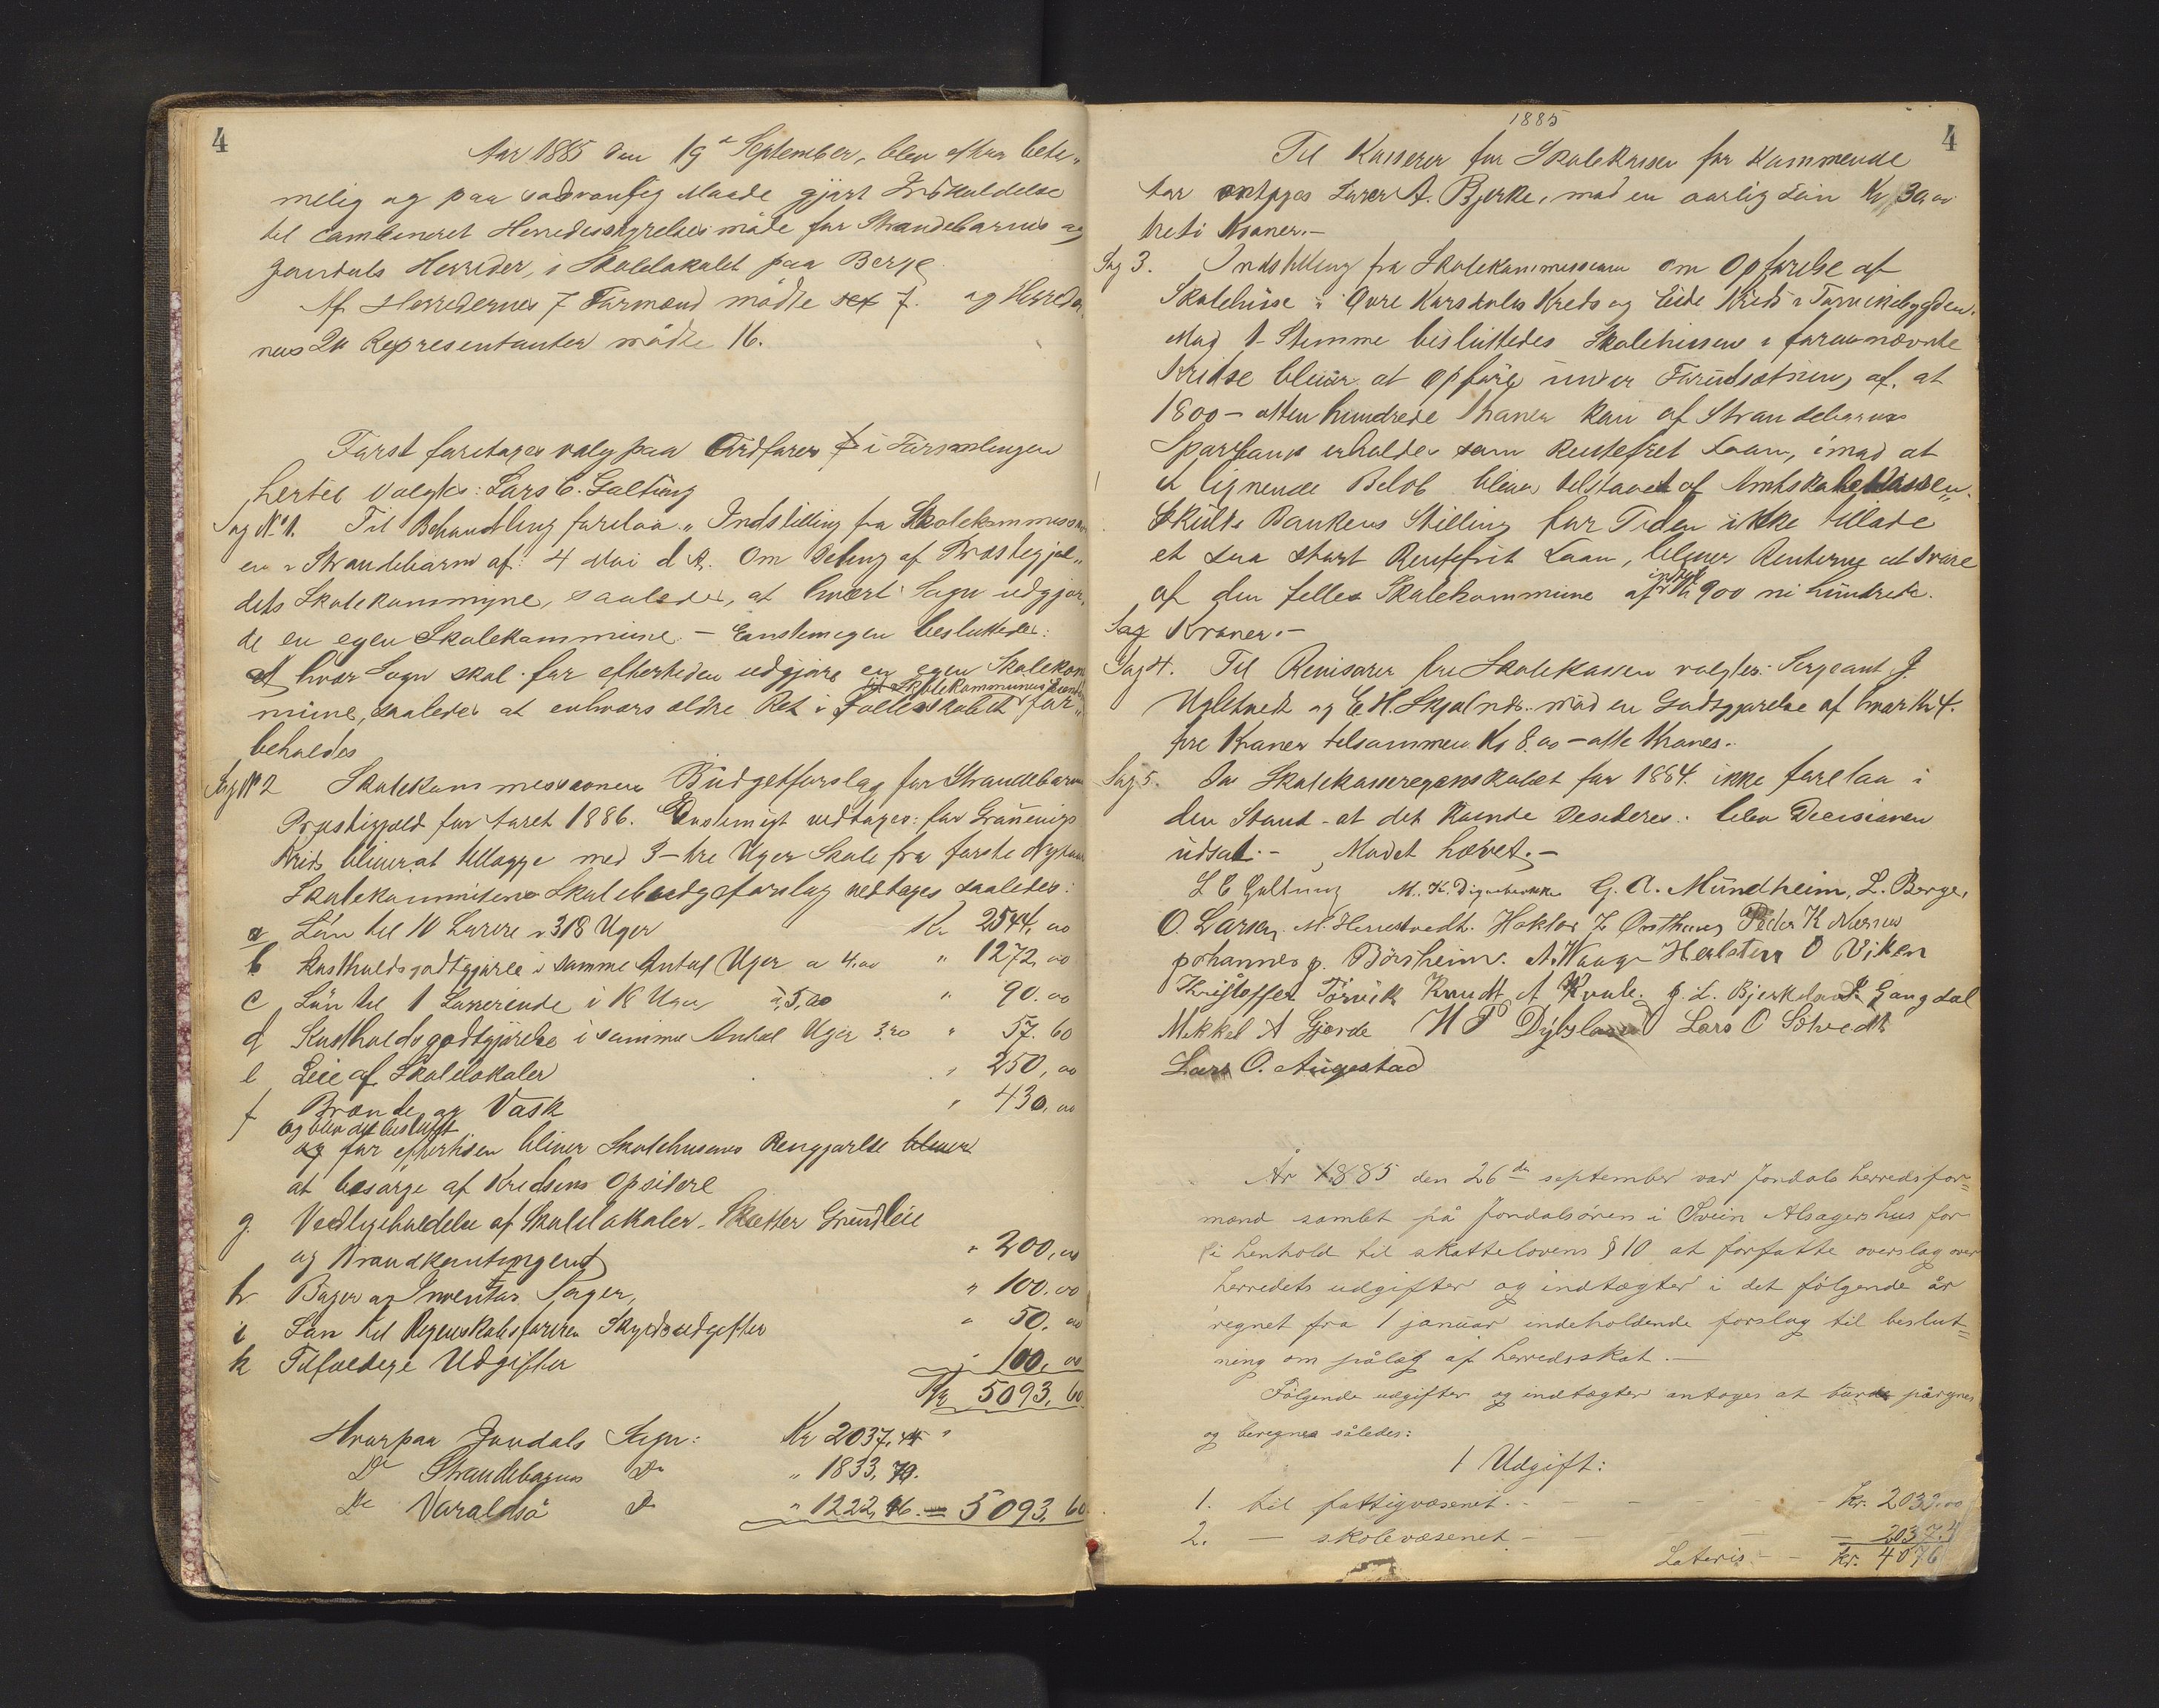 4
Aar 1885 den 19de September, blev efter bete„
melig og paa sædvanlig Maade gjort Indkaldelse
til Combineret Herredsstyrelsesmøde for Strandebarms og
Jondals Herreder, i Skolelokalet paa Berge.
Af Herredernes 7 Formænd mødte sex 7. og Herreder„
nes 20 Representanter mødte 16.
Først foretages valg paa Ordfører i Forsamlingen
hertil valgtes: Lars C. Galtung
Sag No 1. Til Behandling forelaa „Indstilling fra Skolekommission
en i Strandebarm af 4 Mai d. A. Om Deling af Præstegjæl„
dets Skolekommune, saaledes, at hvert Sogn udgjør„
de en egen Skolekommune. – Eenstemigen besluttedes:
At hver Sogn skal for eftertiden udgjøre en egen Skolekom
mune, saaledes at enhvers ældre Ret i Fællesskabet for„
til Skolekommunens
beholdes
Sag No 2 Skolekommissionens Budgetforslag for Strandebarms
Præstegjæld for Aaret 1886. Enstemigt vedtages: for Gravenings
Kreds bliver at tillægge med 3 – tre Uger Skole fra første Nytaar
Skolekommisens Skolebudgetforslag vedtages saaledes:
a Løn til 10 Lærere i 318 Uger Kr. 2544,00
b Kostholdsgodtgjørelse i samme Antal Uger a 4,00 „ 1272,00
c Løn til 1 Lærerinde i 18 Uger à 5,00 „ 90.00
d Kostholdsgodtgjørelse i samme Antal Uger 3.20 „ 57.60
e Leie af Skolelokaler „ 250,00
f Brænde og Vask „ 430,00
og blev det besluttet
og for eftertiden bliver Skolehusenes Rengjørelse bliver
at besørge af Kredsens Opsidere
g. Vedligeholdelse af Skolelokaler – Skatter Grundleie
og Brandkontingent „ 200,00
h Bøger og Inventar Sager, „ 100.00
i Løn til Regnskabsføreren Skydsudgifter „ 50,00
k Tilfældige Udgifter „ 100,00
Kr 5093,60
Hvorpaa Jondals Sogn: Kr 2037,45 „
Do Strandebarms Do „ 1833,70.
Do Varaldsø Do „ 1222,46. = 5093,60
1885
4
Til Kasserer for Skolekassen for Kommende
Aar antages Lærer A. Bjerke, mod en aarlig Løn Kr 30,00
treti Kroner.–
Sag 3. Indstilling fra Skolekommissionen om Opførelse af
Skolehuse i Øvre Kreds og Eide Kreds i Tørvikebygden.
Mod 1 Stemme besluttedes Skolehusene i forannævnte
Kredse bliver at opføre under Forudsætning af, at
1800 – atten hundrede Kroner kan af Strandebarms
Sparebank erholdes som Rentefriet Laan, imod at
et lignende Beløb bliver tilstaaet af Amtskolekassen„
Skulde Bankens Stilling for Tiden ikke tillade
et saa stort Rentefrit Laan, bliver Renterne at svare
af den felles Skolekommune af indtil Kr 900 ni hundrede
Sag Kroner.–
Sag 4. Til Revisorer for Skolekassen valgtes: Sergeant J.
og E. H. mod en Godtgjørelse af hver Kr 4.
fire Kroner tilsammen Kr 8.00 – otte Kroner.
Sag 5. Da Skolekasseregnskabet for 1884 ikke forelaa i
den Stand at det kunde Desideres: blev Decisionen
udsat. – Mødet hævet. –
L C Galtung M. K. G. A. Mundheim, L. Berge,
O. Larsen M. Herrestvedt. Haktor Z Østhuus Peder K
Johannes J. Børsheim. A. Waage Herlatein O Viken
Kristoffer Tørvik Knudt A Kvale. J. L. Gangdal
Mikkel A Gjerde H P Lars O Solvedt
Lars O. Augestad
År 1885 den 26de september var Jondals herredsfor=
mænd samlet på Jondalsøren i Svein Alsagers hus for
i henhold til skattelovens § 10 at forfatte overslag over
herredets udgifter og indtægter i det følgende år
regnet fra 1 januar indeholdende forslag til beslut=
ning om pålæg af herredsskat. –
Følgende udgifter og indtægter antages at burde påregnes
og beregnes således:
1 Udgift:
1. til fattigvæsenet. – – – – Kr. 2039.00
2. – skolevæsenet – – – – 2037.4
Lateris – – Kr. 4076